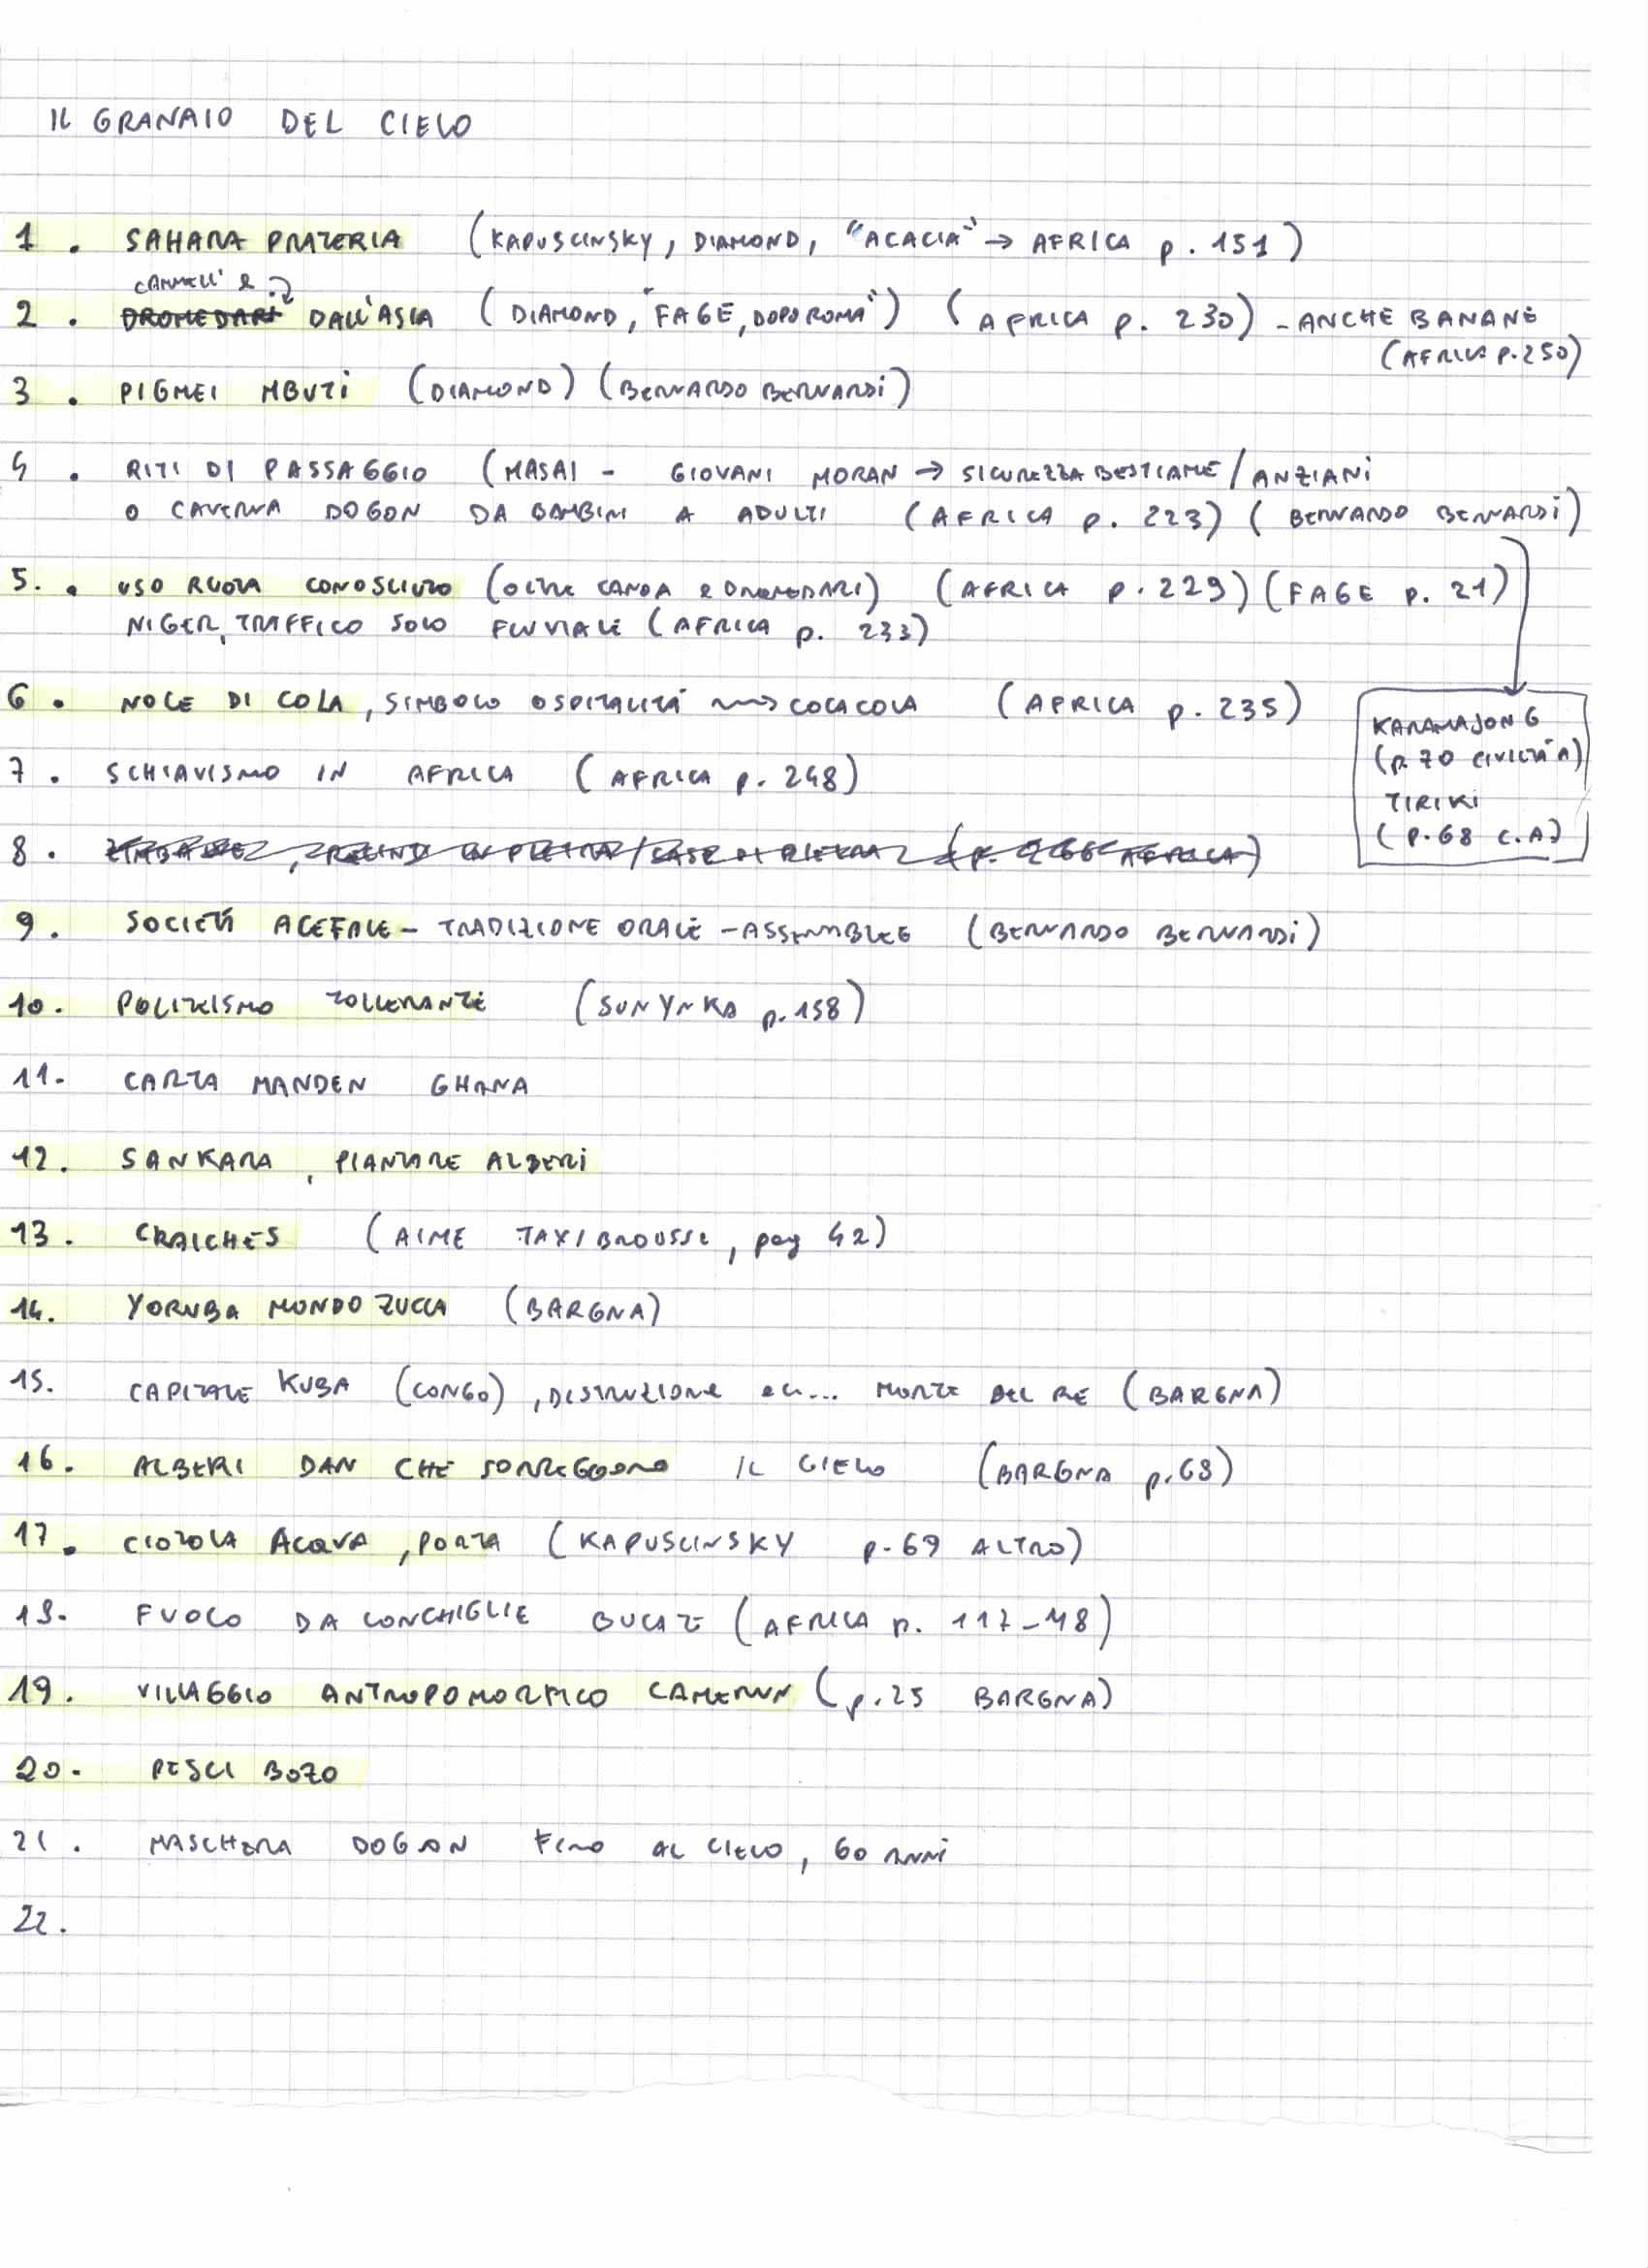 IL GRANAIO DEL CIELO
1. SAHARA PRATERIA (KAPUSCINSKY, DIAMOND, "ACACIA" → AFRICA p. 151)
CAMMELLI E
2. DROMEDARI DALL'ASIA (DIAMOND, "FAGE, DOPO ROMA") (AFRICA p. 230) - ANCHE BANANE
(AFRICA P. 250)
3. PIGMEI MBUTI (DIAMOND) (BERNARDO BERNARDI)
4. RITI DI PASSAGGIO (MASAI - GIOVANI MORAN → SICUREZZA BESTIAME/ANZIANI
O CAVERNA DOGON DA BAMBINI A ADULTI (AFRICA p. 223) (BERNARDO BERNARDI)
5. USO RUOTA CONOSCIUTO (OLTRE CANOA E DROMEDARI) (AFRICA p. 229) (FAGE p. 21)
NIGER, TRAFFICO SOLO FLUVIALE (AFRICA p. 233)
6. NOCE DI COLA, SIMBOLO OSPITALITÁ → COCACOLA (AFRICA p. 235)
KARAMAJONG
(p. 70 CIVILTÀ A)
TIRIKI
(P. 68 C.A)
7. SCHIAVISMO IN AFRICA (AFRICA p. 248)
8.
9. SOCIETÁ ACEFALE - TRADIZIONE ORALE - ASSEMBLEE (BERNARDO BERNARDI)
10. POLITEISMO TOLLERANTE (p. 158)
11. CARTA MANDEN GHANA
12. SANKARA, PIANTARE ALBERI
13. CRAICHES (AIME TAXIBROUSSE, pag 42)
14. YORUBA MONDO ZUCCA (BARGNA)
15. CAPITALE KUBA (CONGO), DISTRUZIONE ecc... MORTE DEL RE (BARGNA)
16. ALBERI DAN CHE SORREGGONO IL CIELO (BARGNA p. 68)
17. CIOTOLA ACQUA, PORTA (KAPUSCINSKY p. 69 ALTRO)
18. FUOCO DA CONCHIGLIE BUCATE (AFRICA p. 117-48)
19. VILLAGGIO ANTROPOMORFICO CAMERUN (p. 25 BARGNA)
20. PESCI BOZO
21. MASCHERA DOGON FINO AL CIELO, 60 ANNI
22.